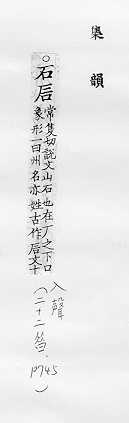 集韻
○石后
常隻切說文山石也在厂之下口
象形一曰州名亦姓古作后文十
入聲
(二十二笞.
P745
)